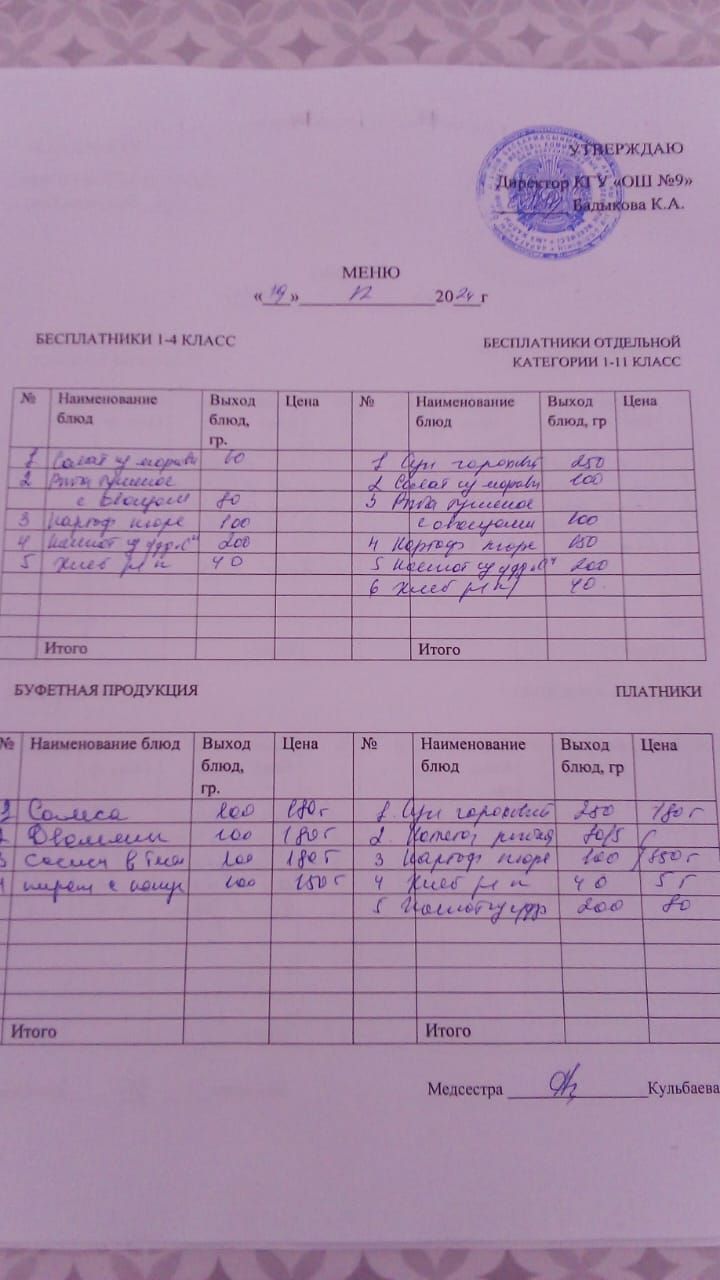 УТВЕРЖДАЮ
Директор КГУ «ОШ №9»
Бадыкова К.А.
МЕНЮ
«19» 12 2024г
БЕСПЛАТНИКИ 1-4 КЛАСС
БЕСПЛАТНИКИ ОТДЕЛЬНОЙ
КАТЕГОРИИ 1-11 КЛАСС
№ Наименование блюд Выход блюд, гр. Цена № Наименование блюд Выход блюд, гр Цена
1 Салат из моркови 60
2 Рыба тушеное
с овощами 80
3 Картоф пюре 100
4 Компот 200
5 Хлеб 40
1 Суп гороховый 250
2 Салат из моркови 100
3 Рыба тушеное
с овощами 100
4 Картоф пюре 150
5 Компот 200
6 Хлеб 40
Итого Итого
БУФЕТНАЯ ПРОДУКЦИЯ
ПЛАТНИКИ
№ Наименование блюд Выход блюд, гр. Цена № Наименование блюд Выход блюд, гр Цена
1 Самса 100 180т
2 100 180т
3 в 100 180т
4 с 100 150т
1 Суп гороховый 250 180т
2 80/5
3 Картоф пюре 100
4 Хлеб 40 5т
5 Компот 200 80
Итого Итого
Медсестра Кульбаева